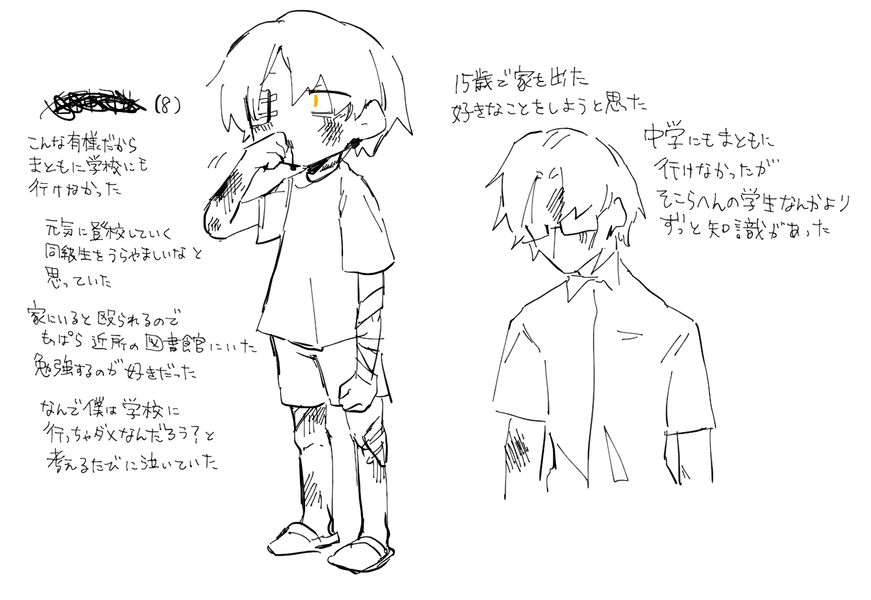 (8)
こんな有様だから
まともに学校にも
行けなかった
元気に登校していく
同級生をうらやましいなと
思っていた
家にいると殴られるので
もっぱら近所の図書館にいた
勉強するのが好きだった
なんで僕は学校に
行っちゃダメなんだろう?と
考えるたびに泣いていた
15歳で家を出た
好きなことをしようと思った
中学にもまともに
行けなかったが
そこらへんの学生なんかより
ずっと知識があった